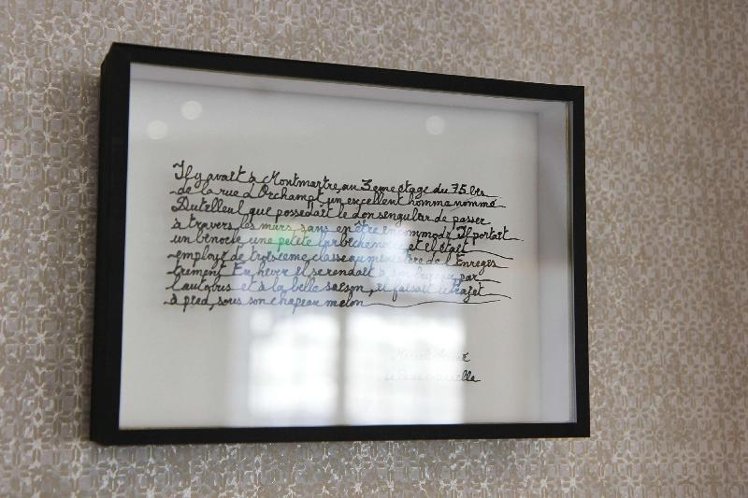 Il y avait à Montmartre, au 3eme étage du 75 bis
de la rue d'Orchampt, un excellent homme nommé
Dutilleul que possedait le don singulier de passer
à travers les murs sans en être incommodé. Il portait
un binocle, une petite barbiche noire et il était
employé de troisieme classe au ministère de l'Enregis
trement. En hiver il se rendait à son bureau par
l'autobus et à la belle saison, il faisait le trajet
à pied, sous son chapeau melon